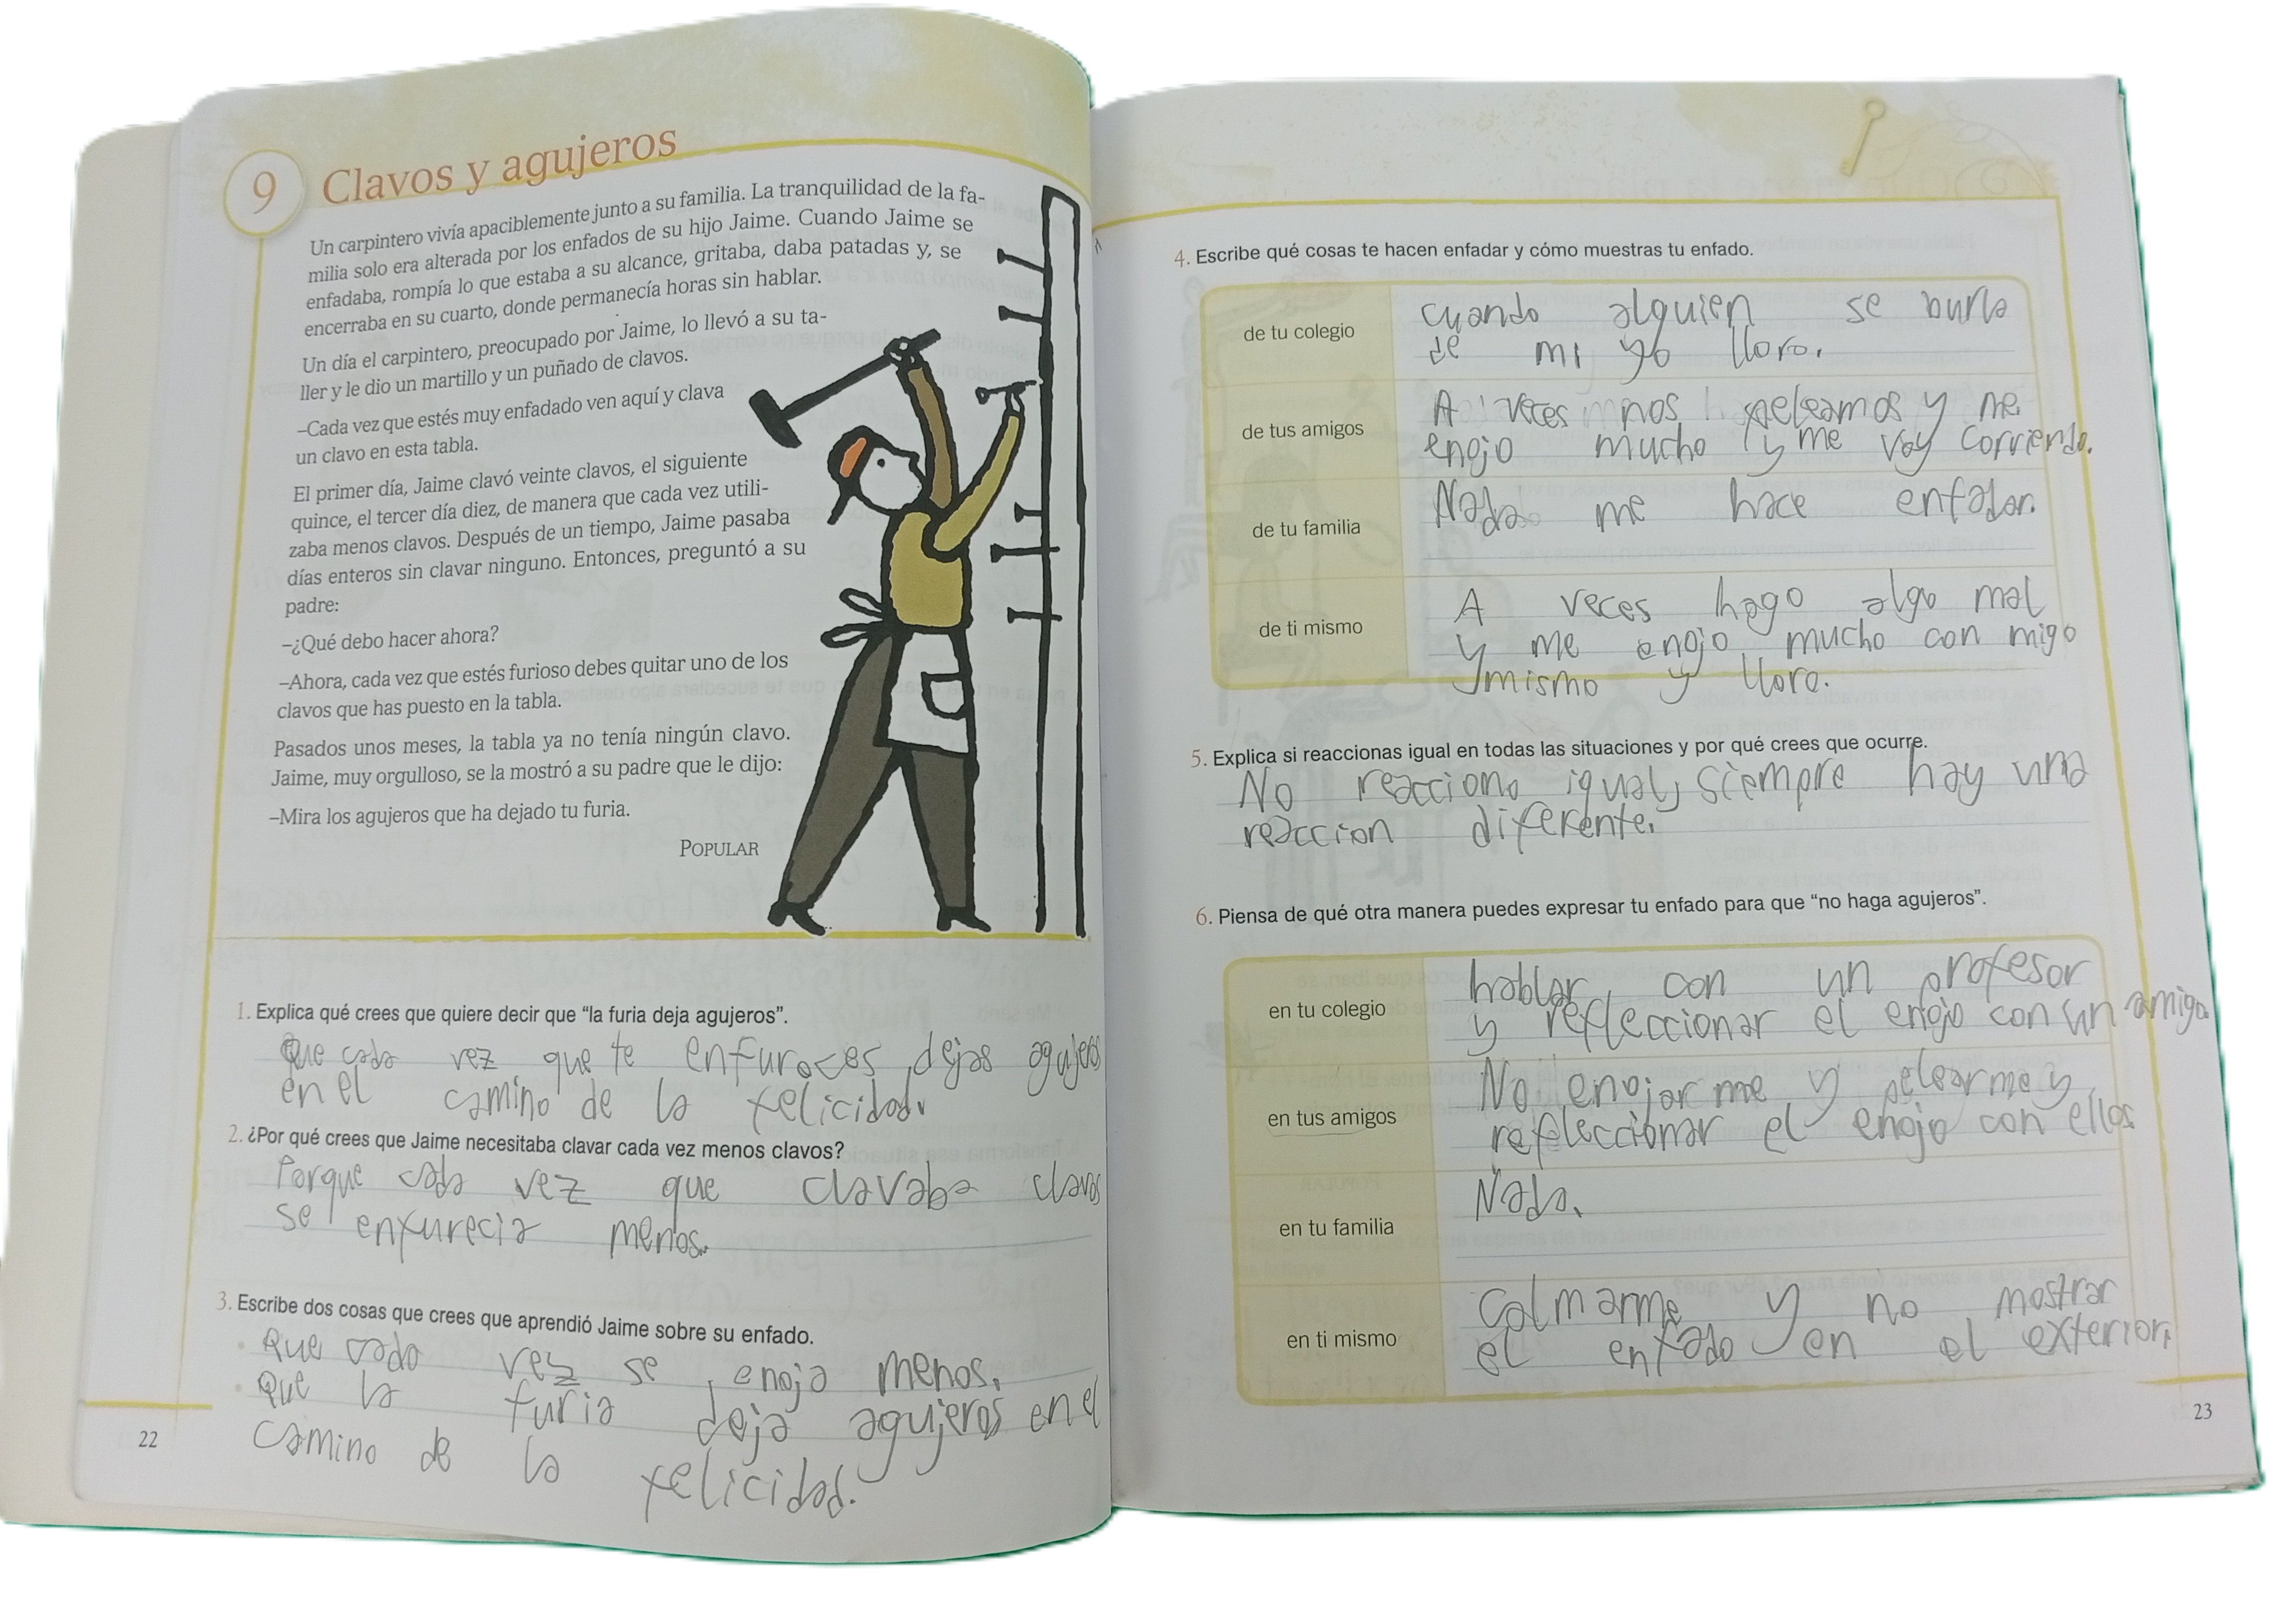 9 Clavos y agujeros
Un carpintero vivía apaciblemente junto a su familia. La tranquilidad de la fa-
milia solo era alterada por los enfados de su hijo Jaime. Cuando Jaime se
enfadaba, rompía lo que estaba a su alcance, gritaba, daba patadas y, se
encerraba en su cuarto, donde permanecía horas sin hablar.
Un día el carpintero, preocupado por Jaime, lo llevó a su ta-
ller y le dio un martillo y un puñado de clavos.
–Cada vez que estés muy enfadado ven aquí y clava
un clavo en esta tabla.
El primer día, Jaime clavó veinte clavos, el siguiente
quince, el tercer día diez, de manera que cada vez utili-
zaba menos clavos. Después de un tiempo, Jaime pasaba
días enteros sin clavar ninguno. Entonces, preguntó a su
padre:
–¿Qué debo hacer ahora?
–Ahora, cada vez que estés furioso debes quitar uno de los
clavos que has puesto en la tabla.
Pasados unos meses, la tabla ya no tenía ningún clavo.
Jaime, muy orgulloso, se la mostró a su padre que le dijo:
–Mira los agujeros que ha dejado tu furia.
POPULAR
1. Explica qué crees que quiere decir que "la furia deja agujeros".
Que cada vez que te enfuroces dejas agujeros
en el camino de la felicidad.
2. ¿Por qué crees que Jaime necesitaba clavar cada vez menos clavos?
Porque cada vez que clavaba clavos
se enfurecia menos.
3. Escribe dos cosas que crees que aprendió Jaime sobre su enfado.
• Que cada vez se enoja menos.
• Que la furia deja agujeros en el
camino de la felicidad.
22
4. Escribe qué cosas te hacen enfadar y cómo muestras tu enfado.
de tu colegio
cuando alguien se burla
de mi yo lloro.
de tus amigos
A veces nos peleamos y me
enojo mucho y me voy corriendo.
de tu familia
Nada me hace enfadar.
de ti mismo
A veces hago algo mal
y me enojo mucho con migo
mismo y lloro.
5. Explica si reaccionas igual en todas las situaciones y por qué crees que ocurre.
No reacciono igual, siempre hay una
reaccion diferente.
6. Piensa de qué otra manera puedes expresar tu enfado para que "no haga agujeros".
en tu colegio
hablar con un profesor
y refleccionar el enojo con un amigo.
en tus amigos
No enojar me y pelearme y
refleccionar el enojo con ellos
en tu familia
Nada.
en ti mismo
Calmarme y no mostrar
el enfado en el exterior.
23